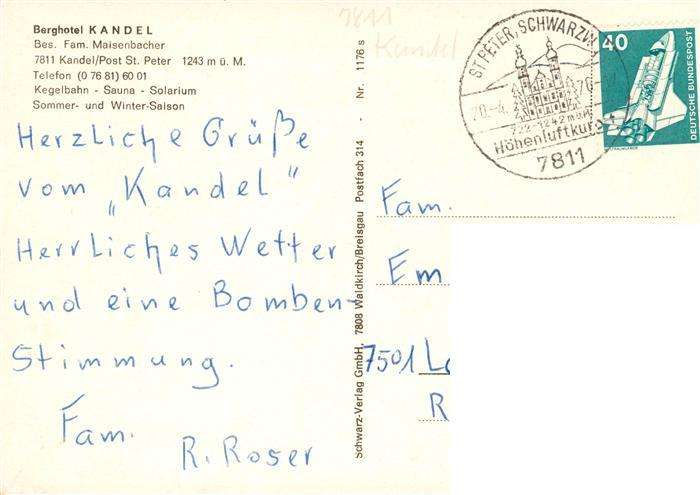 Berghotel KANDEL
Bes. Fam. Maisenbacher
7811 Kandel/Post St. Peter 1243 m ü. M.
Telefon (0 76 81) 60 01
Kegelbahn - Sauna - Solarium
Sommer- und Winter-Saison
Herzliche Grüße
vom „Kandel"
Herrliches Wetter
und eine Bomben-
Stimmung.
Fam.
R. Roser
Schwarz-Verlag GmbH, 7808 Waldkirch/Breisgau Postfach 314 - Nr. 1176 s
7811
Kandel
ST. PETER, SCHWARZW
722-1242 m ü M
Höhenluftkurort
7811
40
DEUTSCHE BUNDESPOST
Fam.
Em
7501
R